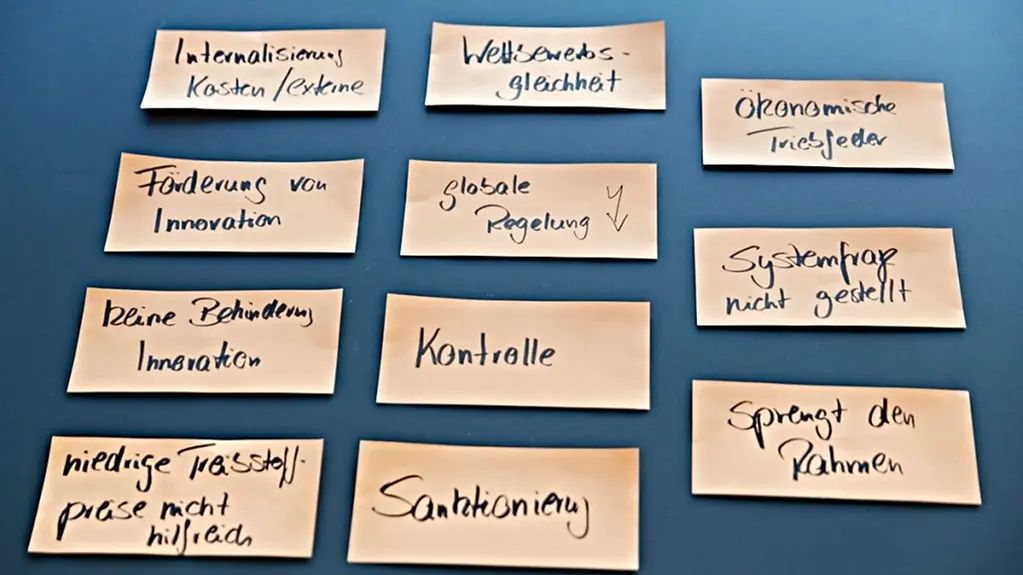 Internalisierung
Kosten /externe
Förderung von
Innovation
keine Behinderung
Innovation
niedrige Treibstoff-
preise nicht
hilfreich
Wettbewerbs-
gleichheit
globale
Regelung
Kontrolle
Sanktionierung
Ökonomische
Triebfeder
Systemfrage
nicht gestellt
Sprengt den
Rahmen